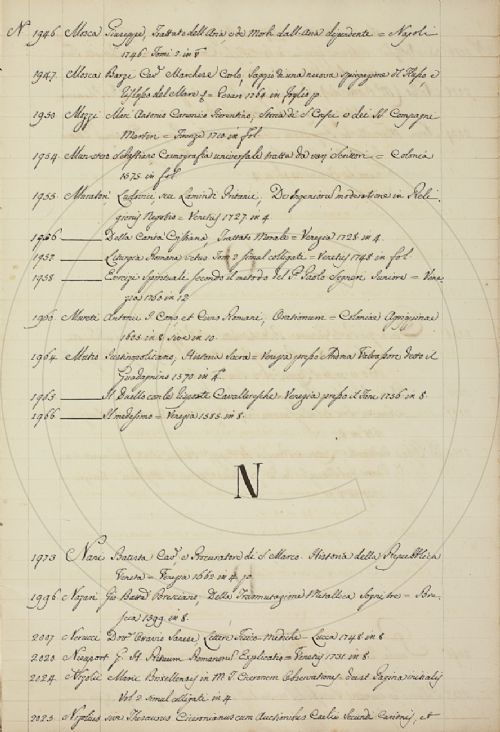 N 1946 Mosca Giuseppe, Trattato dell'Aria, e de Morbi dall'Aria dipendente = Napoli
1746. Tomi 2. in 8
1947 Mosca Barzi Cav. Marchese Carlo, Saggio di una nuova spiegazione del Flusso, e
Riflusso del Mare = Pesaro 1764 in foglio p.
1950 Mozzi Marc Antonio Canonico Fiorentino, Storia di S. Cresci, e dei SS. Compagni
Martiri = Firenze 1710. in fol.
1954 Munstero Sebastiano Cosmografia universale tratta da varj Scrittori = Colonia
1575. in fol.
1955 Muratori Ludovici, seu Lamindi Pritanii, De Ingeniorum moderatione in Reli-
gionis Negotio = Venetiis 1727 in 4.
1956 Della Carità Cristiana, Trattato Morale = Venezia 1723. in 4.
1957 Liturgia Romana Vetus Tom. 2 simul colligati = Venetiis 1748 in fol.
1958 Esercizj Spirituali secondo il metodo del P. Paolo Segneri Juniore = Vene-
zia 1760 in 12
Mureti Antonii I. Cons. et Civis Romani, Orationum = Coloniae Agrippinae
1964 Mutio Justinopolitano, Historia Sacra = Venezia presso Andrea Valvassore detto il
Guadagnino 1570. in 4.
1965 Il Duello con le Risposte Cavalleresche = Venezia presso il 1556 in 8.
1966 Il medesimo = Venezia 1585. in 8.
N
1973 Nani Batista Cav. e Procuratore di S. Marco. Historia della Repubblica
Veneta = Venezia 1662 in 4. p.
1996 Nazari Gio Batta Bresciano, Della Trasmutazione Metallica Sogni tre = Bre-
scia 1599. in 8.
2007 Nerucci Dott. Ottavio Sanese Lettere Fisico-Mediche = Lucca 1748 in 8
2020 Rituum Romanorum Explicatio = Venetiis 1731 in 8.
2024 Nizolii Marii Brixellensis in M. T. Ciceronem Observationes duest Pagina initialis
Vol. 2 simul colligati in 4.
2025 Nizolius sive Thesaurus Ciceronianus cum Auctionibus Caelii Secundi Curionis, et